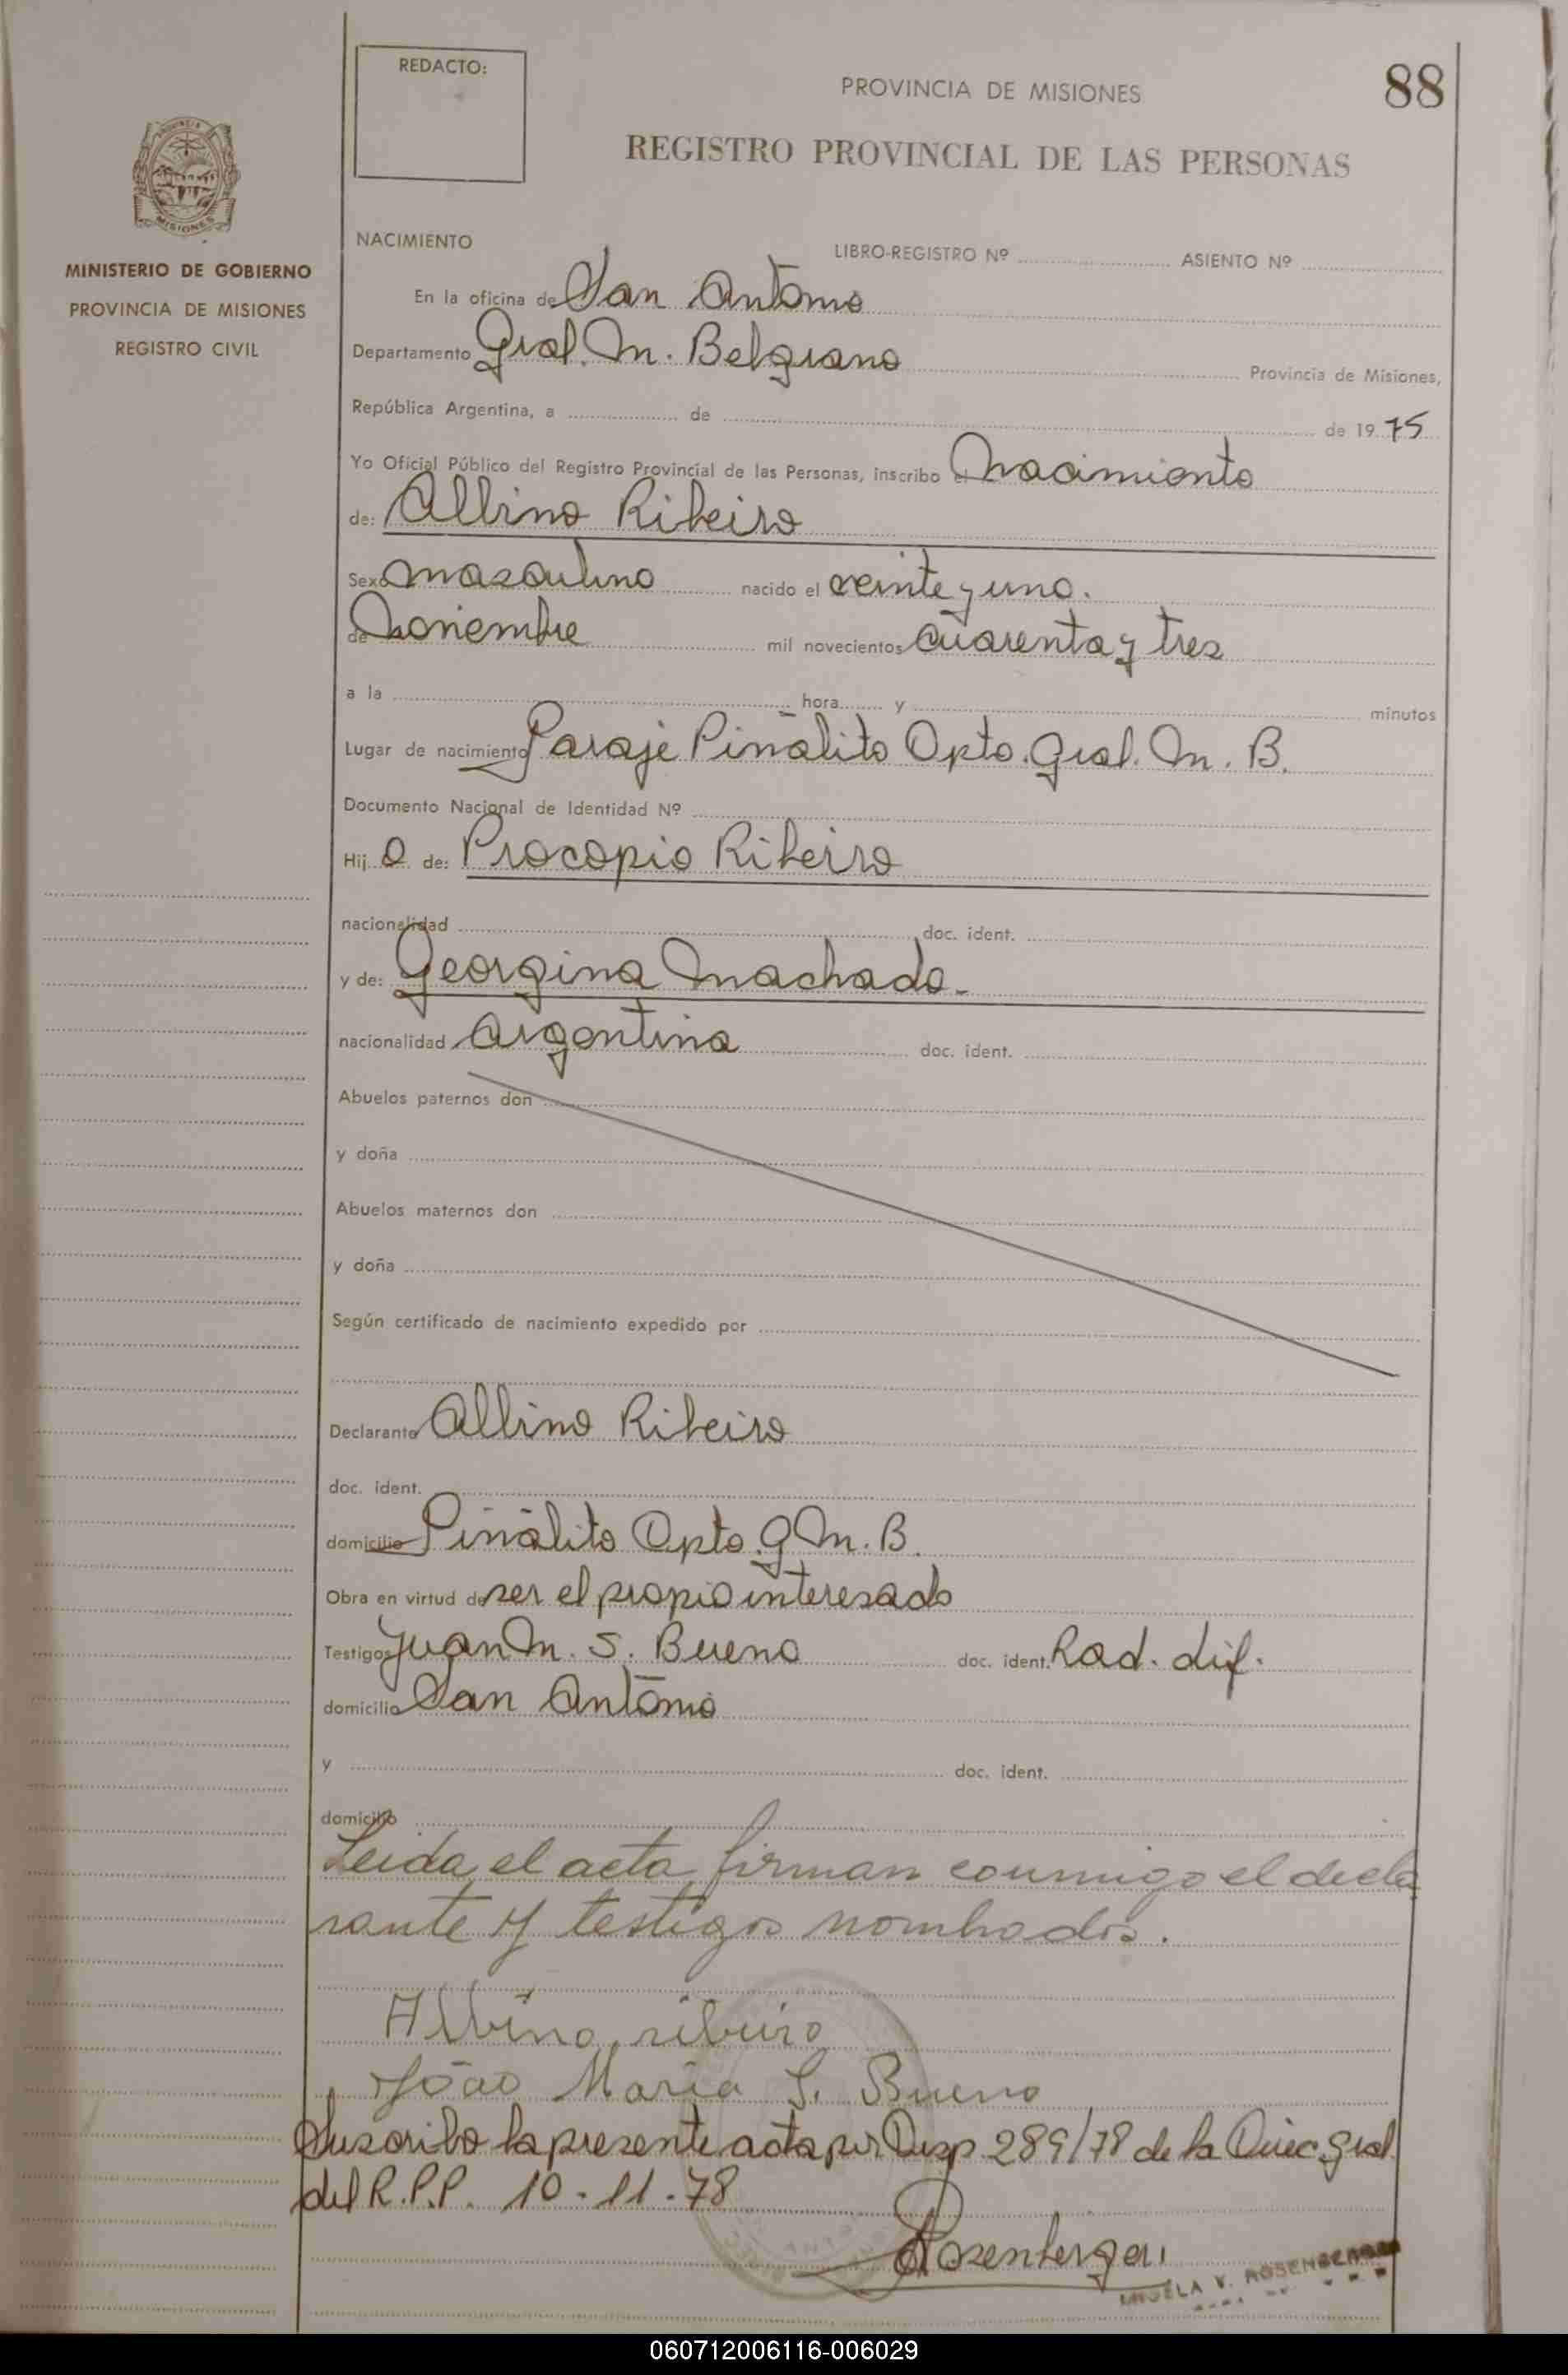 REDACTO:
PROVINCIA DE MISIONES
88
REGISTRO PROVINCIAL DE LAS PERSONAS
PROVINCIA DE
MISIONES
MINISTERIO DE GOBIERNO
PROVINCIA DE MISIONES
REGISTRO CIVIL
NACIMIENTO LIBRO-REGISTRO Nº ASIENTO Nº
En la oficina de San Antonio
Departamento Gral. M. Belgrano Provincia de Misiones,
República Argentina, a de de 1975
Yo Oficial Público del Registro Provincial de las Personas, inscribo el Nacimiento
de: Albino Ribeiro
Sexo masculino nacido el veinte y uno.
de Noviembre mil novecientos cuarenta y tres
a la hora y minutos
Lugar de nacimiento Paraje Piñalito Dpto. Gral. M. B.
Documento Nacional de Identidad Nº
Hij o de: Procopio Ribeiro
nacionalidad doc. ident.
y de: Georgina Machado.
nacionalidad Argentina doc. ident.
Abuelos paternos don
y doña
Abuelos maternos don
y doña
Según certificado de nacimiento expedido por
Declarante Albino Ribeiro
doc. ident.
domicilio Piñalito Dpto. G M. B.
Obra en virtud de ser el propio interesado
Testigos Juan M. S. Bueno doc. ident. Rad. dif.
domicilio San Antonio
y doc. ident.
domicilio
Leida el acta firman conmigo el decla
rante y testigos nombados.
Albino ribeiro
João Maria S. Bueno
Suscribo la presente acta por Disp 289/78 de la Direc. Gral.
del R.P.P. 10-11-78
Rosenberger
V. ROSENBERGER
060712006116-006029